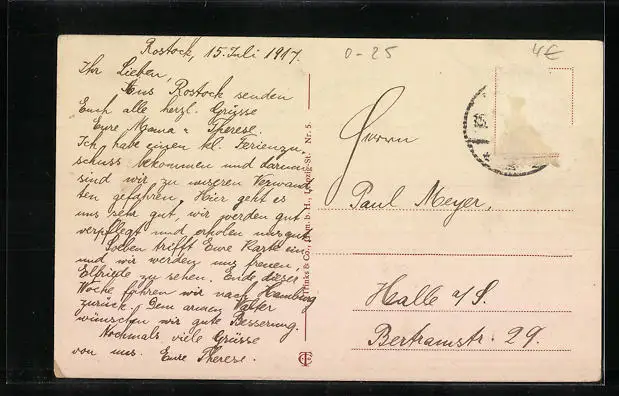 Rostock, 15. Juli 1917.
Ihr Lieben,
Aus Rostock senden
Euch alle herzl. Grüsse
Eure Mama u. Therese.
Ich habe einen kl. Ferienzu-
schuss bekommen und darum
sind wir zu unseren Verwand-
ten gefahren. Hier geht es
uns sehr gut, wir werden gut
verpflegt und erholen uns gut.
Soeben trifft Eure Karte ein
und wir werden uns freuen,
Elfriede zu sehen. Ende dieser
Woche fahren wir nach Hamburg
zurück. Dem armen
wünschen wir gute Besserung.
Nochmals viele Grüsse
von uns. Eure Therese.
0-25
4€
Herrn
Paul Meyer,
Halle a/S.
Bertramstr. 29.
& Co., G.m.b.H., Leipzig-St. Nr. 5.